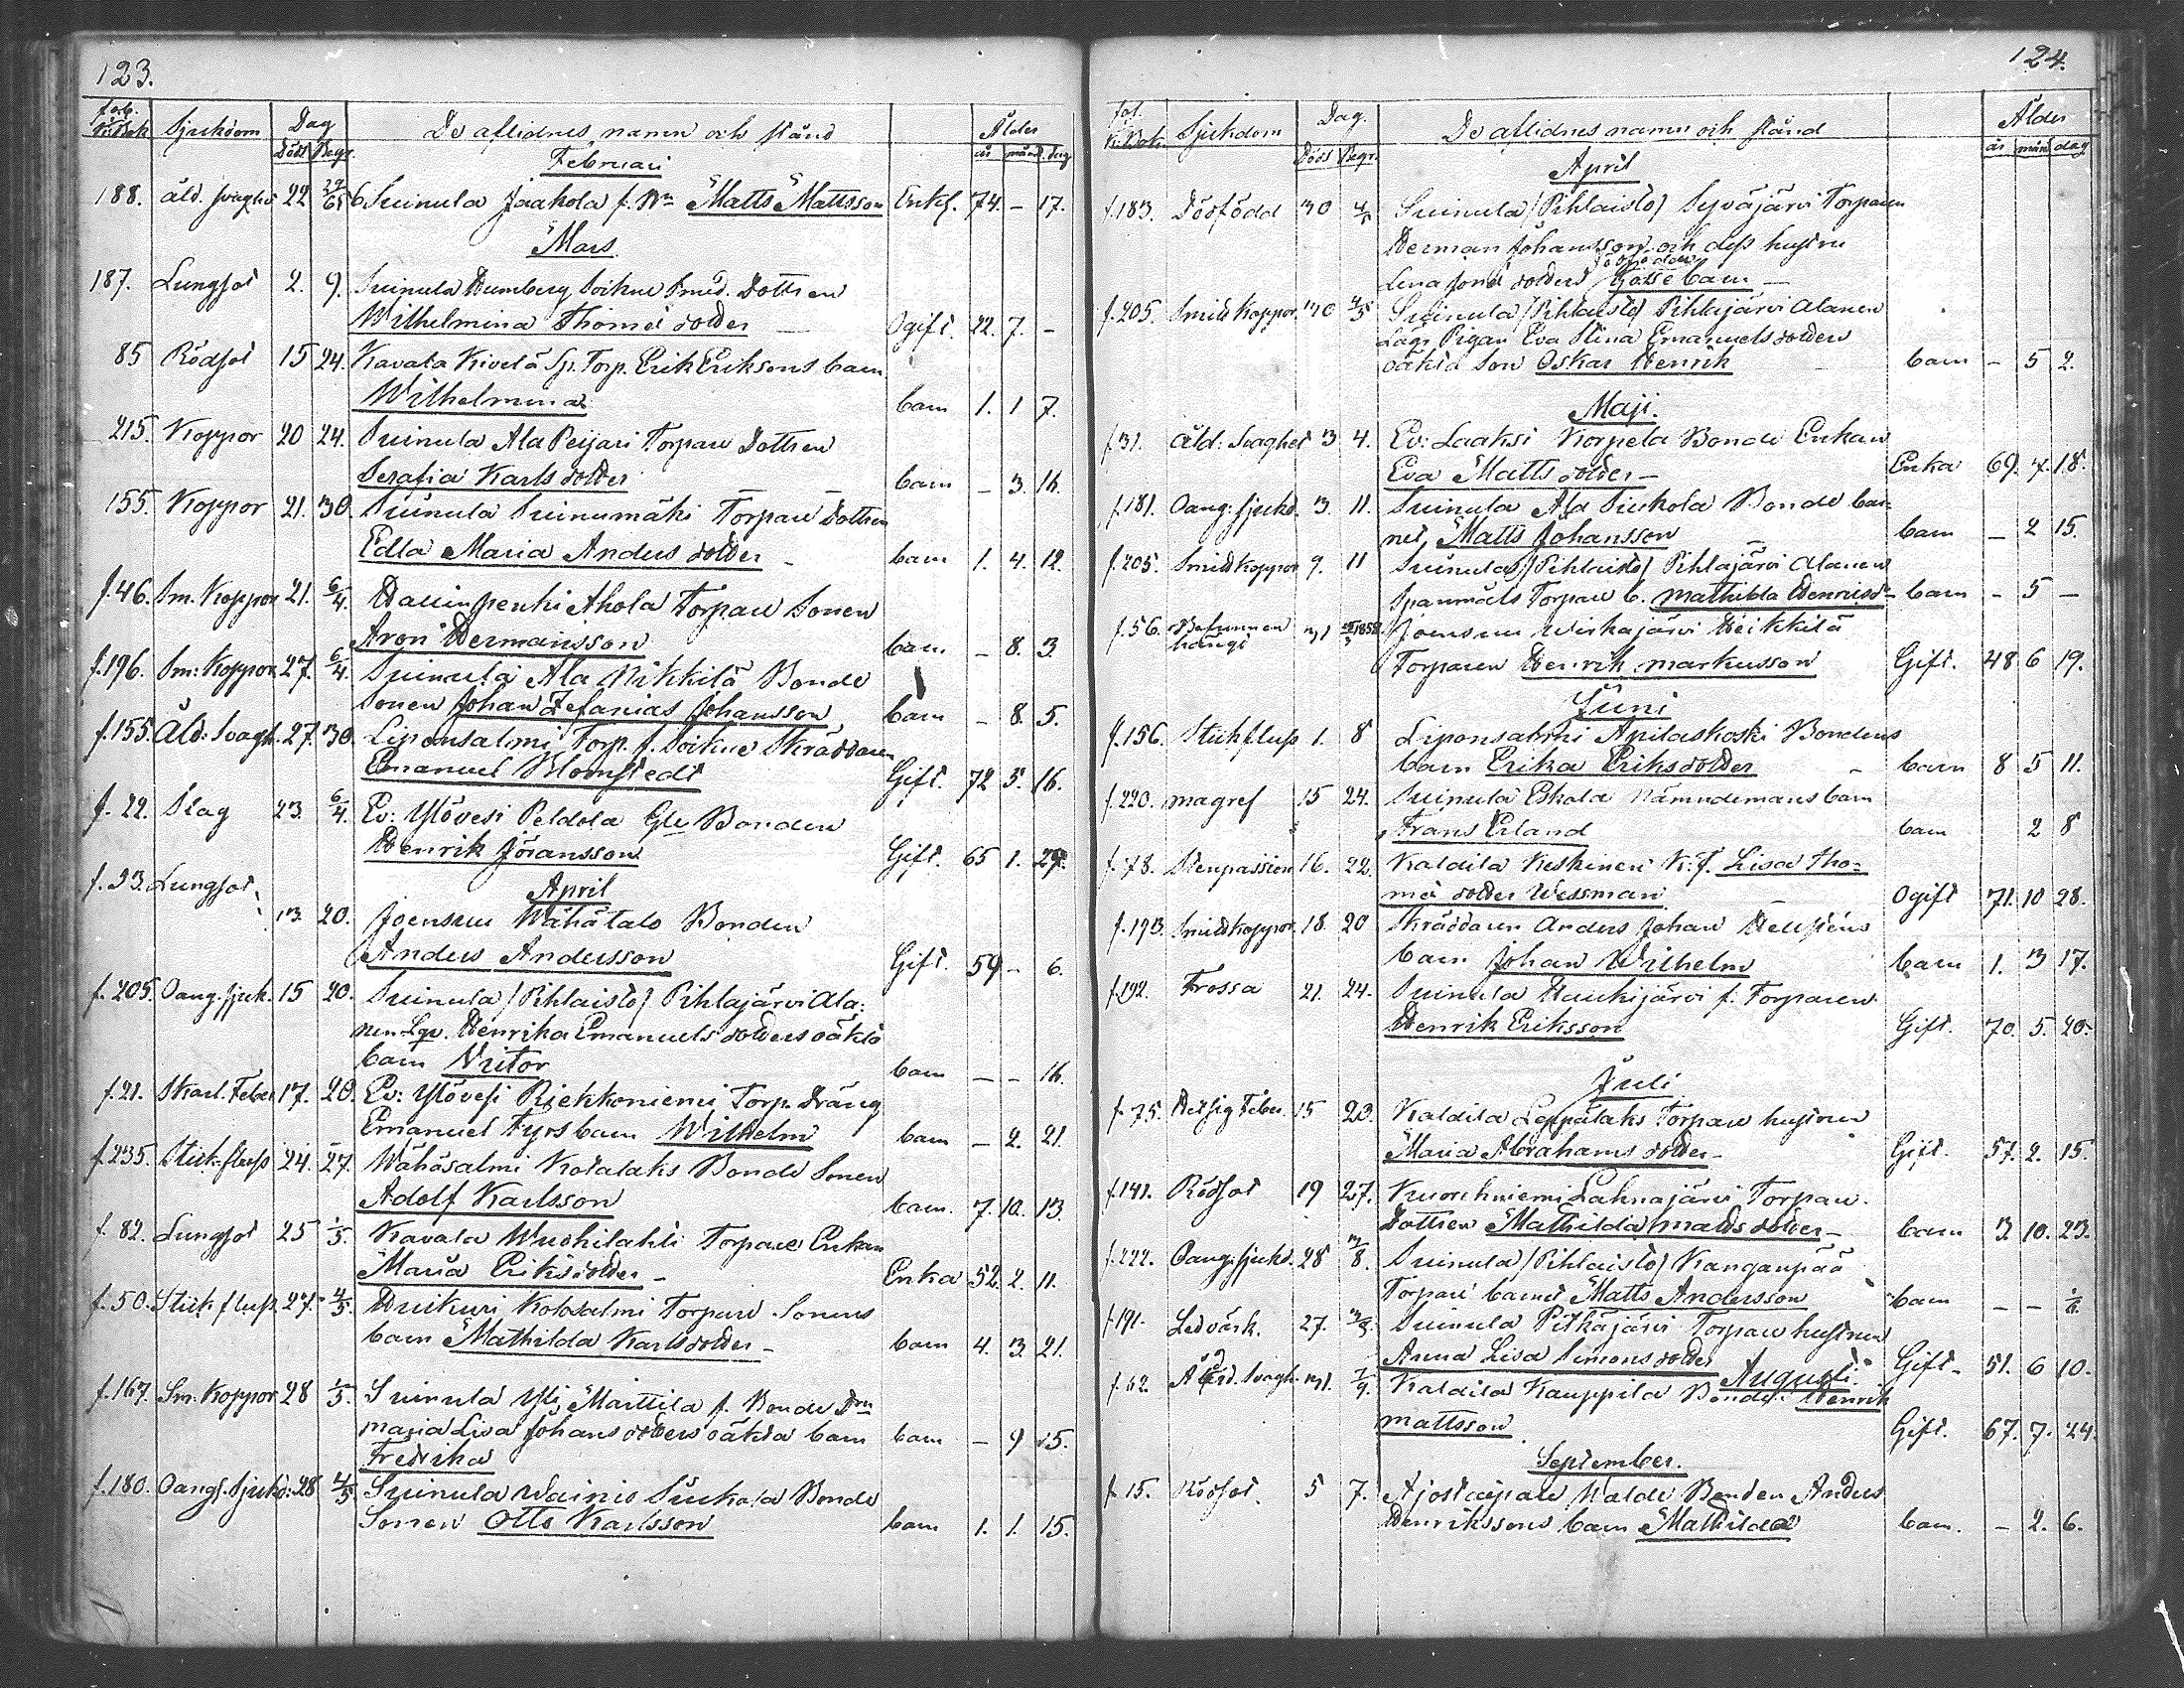 123.
fol. Sjukdom Dag De aflidnes namn och stånd Ålder
Död Begr. år mån dag
Februari
188. åld. svaghet 22 Suinula Jaakola f. Bn Matts Mattsson Enkl. 74. – 17.
Mars
187. Lungsot 2. 9. Suinula Humberg Soikue Smed. Dottren
Wilhelmina Thomæ dotter Ogift. 22. 7. –
85 Rödsot 15 24. Kavala Kivelä Sp. Torp. Erik Eriksons barn
Wilhelmina barn 1. 1 7.
215. Koppor 20 24. Suinula Ala Peijari Torpare Dottren
Serafia Karls dotter barn – 3. 16.
155. Koppor 21. 30. Suinula Suinumäki Torpare Dottren
Edla Maria Anders dotter – barn 1. 4. 12.
f. 46. Sm. Koppor 21. 6/4. Hauinpenki Ahola Torpare Sonen
Aron Hermansson barn – 8. 3.
f. 196. Sm. Koppor 27. 6/4. Suinula Ala Nikkilä Bonde
Sonen Johan Zefanias Johansson barn – 8. 5.
f. 155. Åld. Svagh. 27. 30. Liponsalmi Torp. f. Soikue Skräddaren
Emanuel Blomstedt Gift. 72 5. 16.
f. 22. Slag 23. 6/4. Ev: Ylövesi Peldola Gle Bonden
Henrik Jöransson Gift. 65 1. 29.
f. 93. Lungsot
April
13. 20. Joensuu Wähätalo Bonden
Anders Andersson Gift. 59 – 6.
f. 205. Oang. sjuk. 15 20. Suinula /Pihlaisto/ Pihlajärvi Ala:
nen Lgr. Henrika Emanuels dotters oäkta
barn Victor barn – – 16.
f. 21. Skarl. Feber 17. 20. Ev: Ylövesi Riekkoniemi Torp. Dräng
Emanuel Fyrs barn Wilhelm barn – 2. 21.
f. 235. Stick-fluss 24. 27. Wähäsalmi Kotalaks Bonde Sonen
Adolf Karlsson barn. 7. 10. 13.
f. 82. Lungsot 25 1/5. Kavala Wuohilahti Torpare Enkan
Maria Eriksdotter – Enka 52. 2. 11.
f. 50. Stick fluss. 27. 4/5. Huikuri Kotosalmi Torpare Sonens
barn Mathilda Karlsdotter – barn 4. 3. 21.
f. 167. Sm. Koppor 28 1/5. Suinula Yli Maittila f. Bonde Drn
Maria Lisa Johans dotters oäkta barn barn – 9 15.
Fredrika
f. 180. Oang. Sjukd: 28 4/5 Suinula Wainio Siukola Bonde
Sonen Otto Karlsson barn 1. 1. 15.
124.
fol. K. Bok. Sjukdom Dag. De aflidnes namn och stånd Ålder
Död Begr. år mån dag
April
f. 183. Dödfödd 30 4/5 Suinula /Pihlaisto/ Syväjärvi Torparen
Herman Johansson och dess hustru
Lena Jonæ dotters dödfödda Gosse barn –
f. 205. Smittkoppor 30 4/5 Suinula /Pihlaisto/ Pihlajärvi Alanen
Lägr Pigan Eva Stina Emanuels dotters
oäkta Son Oskar Henrik barn – 5 2.
Maji.
f. 31. Åld: Svaghet 3. 4. Ev: Laaksi Korpela Bonde Enkan
Eva Matts dotter – Enka 69. 7. 18.
f. 181. Oang: sjukd. 3. 11. Suinula Ala Siukola Bonde bar-
net, Matts Johansson barn – 2 15.
f. 205. Smittkoppor 9. 11 Suinula /Pihlaisto/ Pihlajärvi Alanen
Spanmåls Torpare b. Mathilda Henriksdr – barn – 5 –
f. 56. Befunnen hängd 31 Joensuu Wirkajärvi Heikkilä
Torparen Henrik Markusson Gift. 48 6 19.
Juni
f. 156. Stickfluss 1. 8 Liponsalmi Apilaskoski Bondens
barn Erika Eriksdotter – barn 8 5 11.
f. 220. Magref 15 24. Suinula Eskola Nämndemans barn
Frans Erland barn 2 8
f. 78. Stenpassion 16. 22. Kaldila Keskinen K. f. Lisa Tho-
mæ dotter Wessman Ogift 71. 10 28.
f. 193. Smittkoppor. 18. 20 Skräddaren Anders Johan Helisténs
barn Johan Wilhelm barn 1. 3 17.
f. 192. Frossa 21. 24. Suinula Haukijärvi f. Torparen
Henrik Eriksson Gift. 70. 5. 20.
Juli
f. 75. Hetsig Feber. 15 23. Kaldila Leppälaks Torpare hustrun
Maria Abrahams dotter – Gift. 57. 2. 15.
f. 141. Rödsot 19 27. Kuorehniemi Lahnajärvi Torpare.
Dottren Mathilda Matts dotter – barn 3. 10. 23.
f. 222. Oang: sjukd. 28 3/8. Suinula /Pihlaisto/ Kangaspää
Torpare barnet Matts Andersson barn – –
f. 191. Ledvärk. 27. 3/8. Suinula Pitkäjärvi Torpare hustrun
Anna Lisa Simons dotter Gift – 51. 6 10.
Augusti.
f. 62. Ålderd. Svagh. 31. Kaldila Kauppila Bonden Henrik
Mattsson Gift. 67. 7. 24.
September.
f. 15. Rödsot. 5 7. Ajostaipale Walde Bonden Anders
Henrikssons barn Mathilda barn. – 2. 6.